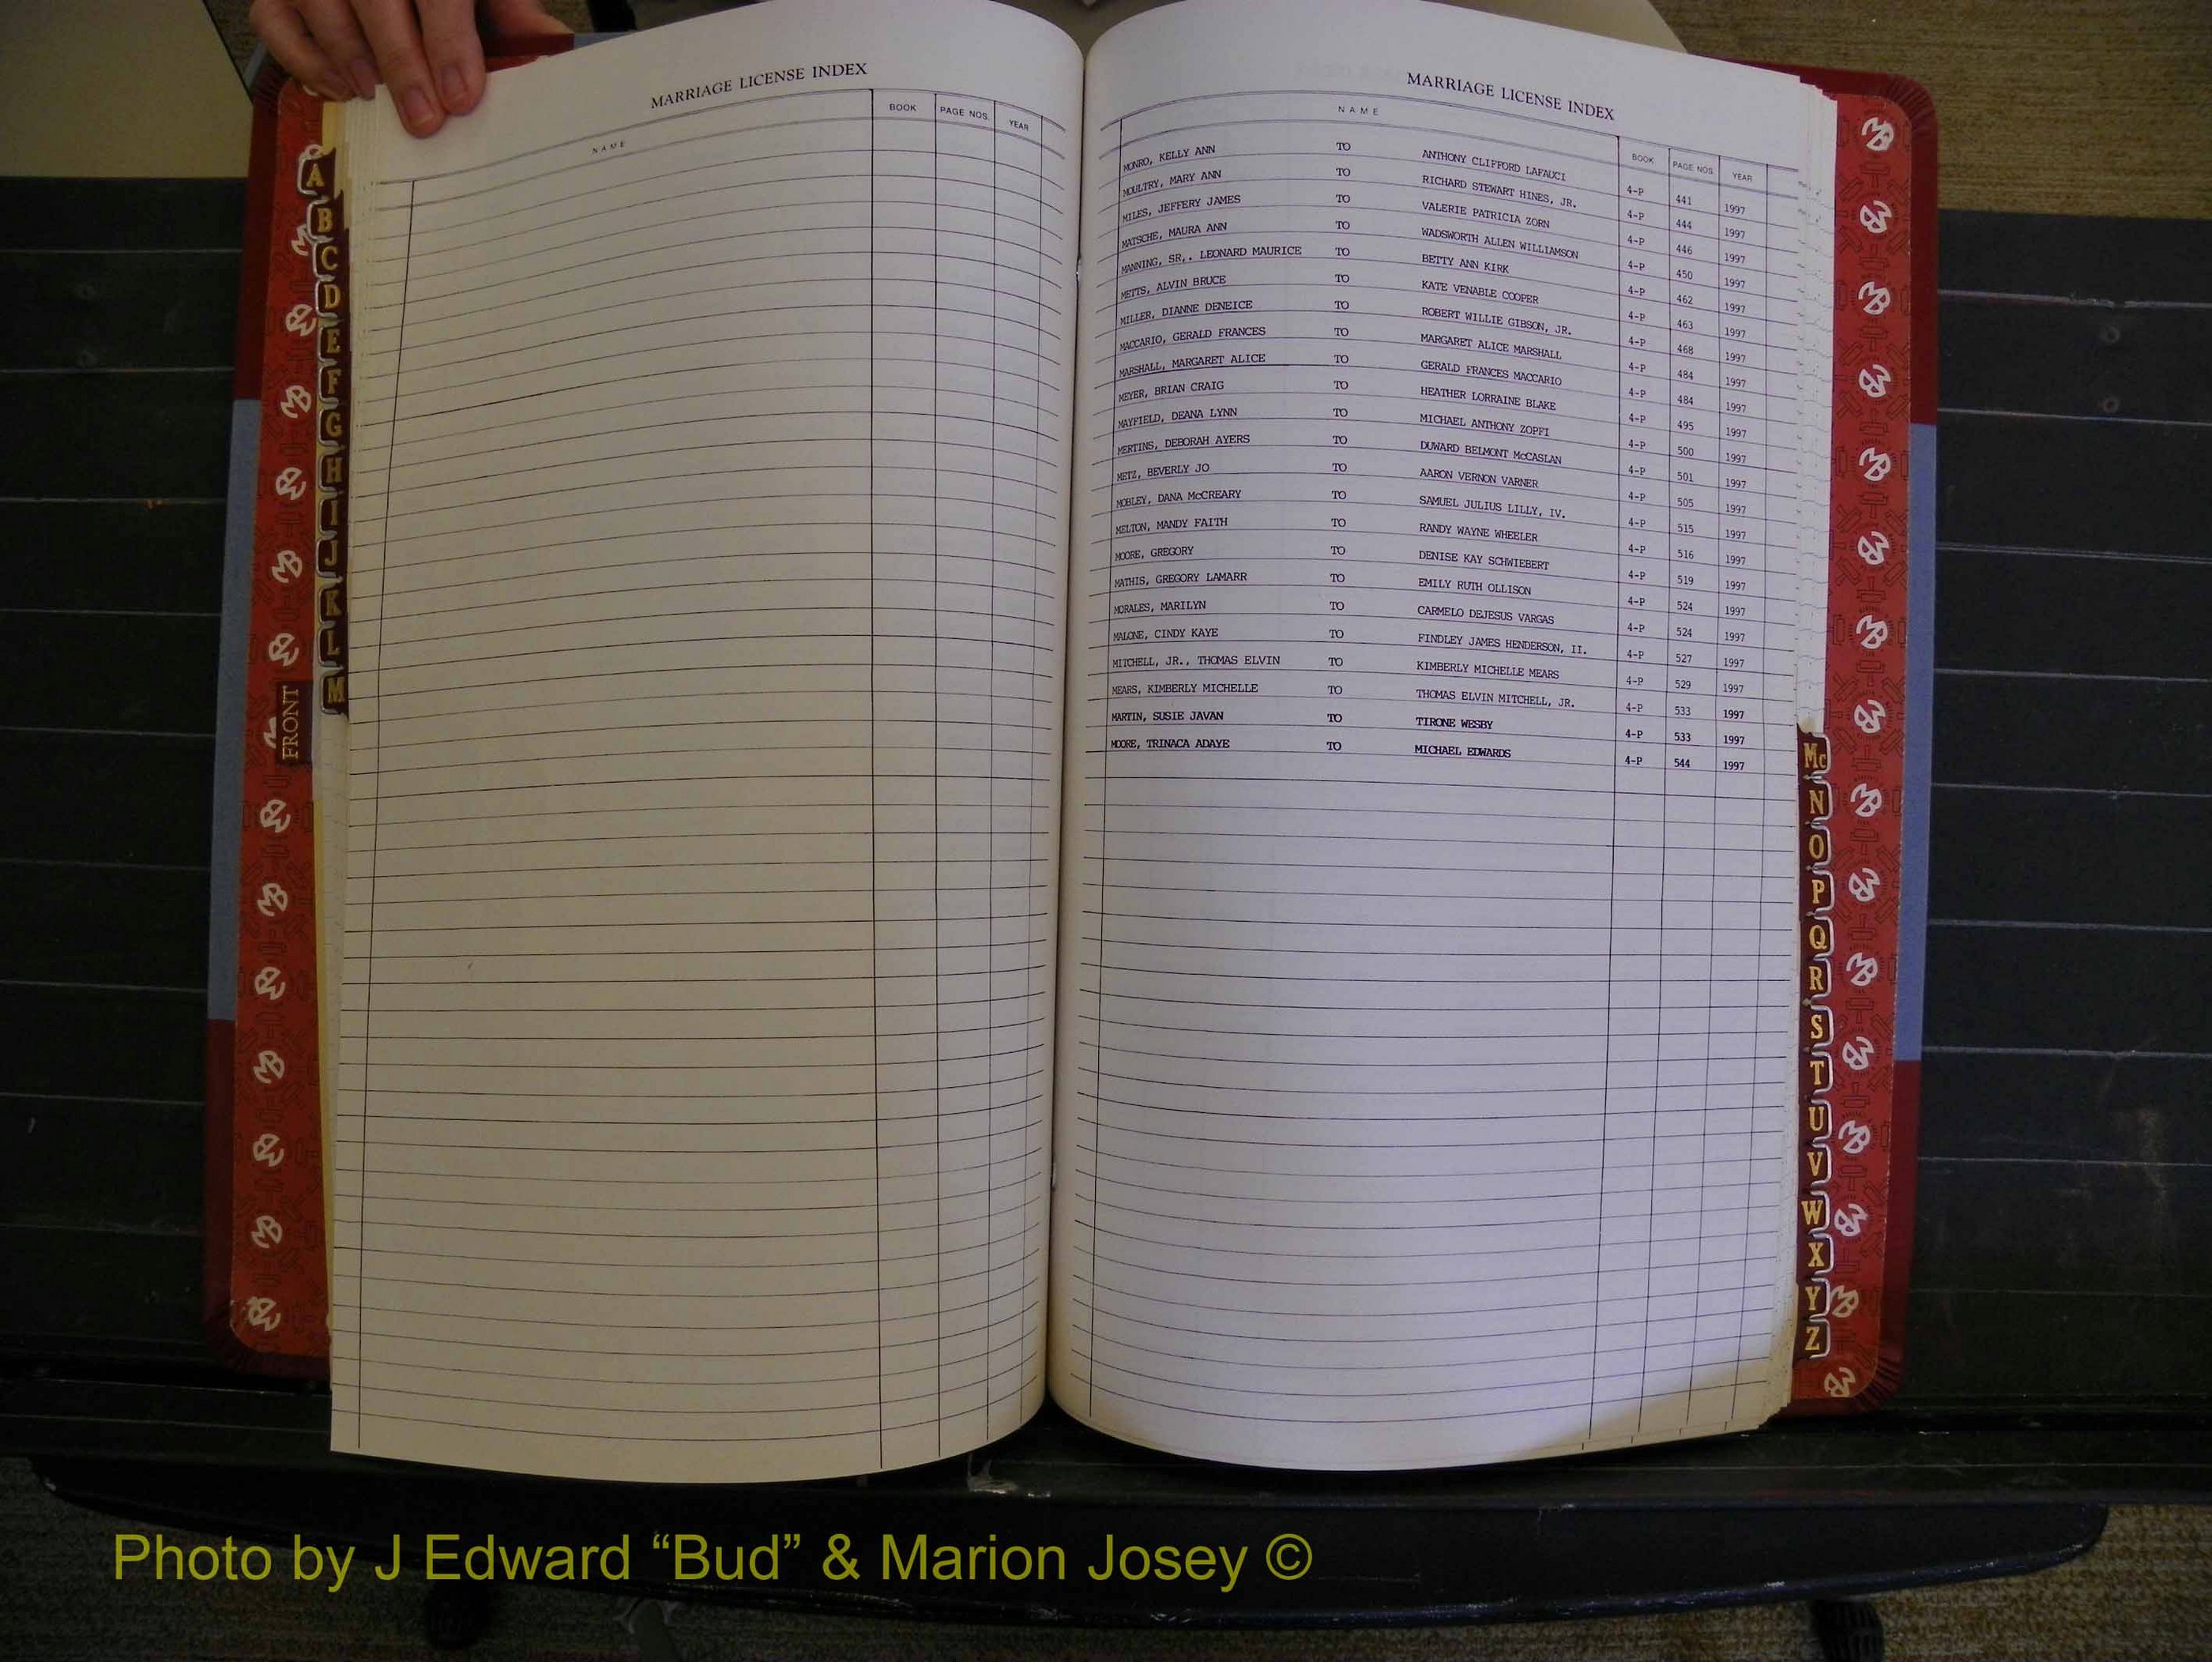 MARRIAGE LICENSE INDEX
NAME BOOK PAGE NOS. YEAR
MARRIAGE LICENSE INDEX
NAME BOOK PAGE NOS. YEAR
MONRO, KELLY ANN TO ANTHONY CLIFFORD LAFAUCI 4-P 441 1997
MOULTRY, MARY ANN TO RICHARD STEWART HINES, JR. 4-P 444 1997
MILES, JEFFERY JAMES TO VALERIE PATRICIA ZORN 4-P 446 1997
MATSCHE, MAURA ANN TO WADSWORTH ALLEN WILLIAMSON 4-P 450 1997
MANNING, SR,. LEONARD MAURICE TO BETTY ANN KIRK 4-P 462 1997
METTS, ALVIN BRUCE TO KATE VENABLE COOPER 4-P 463 1997
MILLER, DIANNE DENEICE TO ROBERT WILLIE GIBSON, JR. 4-P 468 1997
MACCARIO, GERALD FRANCES TO MARGARET ALICE MARSHALL 4-P 484 1997
MARSHALL, MARGARET ALICE TO GERALD FRANCES MACCARIO 4-P 484 1997
MEYER, BRIAN CRAIG TO HEATHER LORRAINE BLAKE 4-P 495 1997
MAYFIELD, DEANA LYNN TO MICHAEL ANTHONY ZOPFI 4-P 500 1997
MERTINS, DEBORAH AYERS TO DUWARD BELMONT McCASLAN 4-P 501 1997
METZ, BEVERLY JO TO AARON VERNON VARNER 4-P 505 1997
MOBLEY, DANA McCREARY TO SAMUEL JULIUS LILLY, IV. 4-P 515 1997
MELTON, MANDY FAITH TO RANDY WAYNE WHEELER 4-P 516 1997
MOORE, GREGORY TO DENISE KAY SCHWIEBERT 4-P 519 1997
MATHIS, GREGORY LAMARR TO EMILY RUTH OLLISON 4-P 524 1997
MORALES, MARILYN TO CARMELO DEJESUS VARGAS 4-P 524 1997
MALONE, CINDY KAYE TO FINDLEY JAMES HENDERSON, II. 4-P 527 1997
MITCHELL, JR., THOMAS ELVIN TO KIMBERLY MICHELLE MEARS 4-P 529 1997
MEARS, KIMBERLY MICHELLE TO THOMAS ELVIN MITCHELL, JR. 4-P 533 1997
MARTIN, SUSIE JAVAN TO TIRONE WESBY 4-P 533 1997
MOORE, TRINACA ADAYE TO MICHAEL EDWARDS 4-P 544 1997
A
B
C
D
E
F
G
H
I
J
K
L
M
FRONT
Mc
N
O
P
Q
R
S
T
U
V
W
X
Y
Z
Photo by J Edward “Bud” & Marion Josey ©